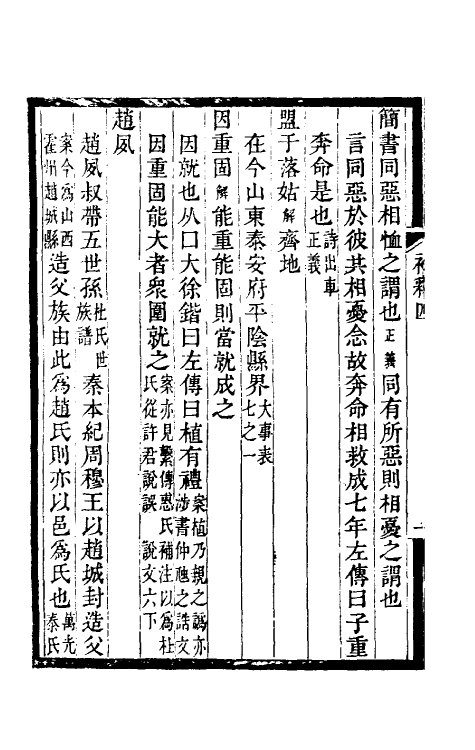 簡書同惡相恤之謂也正義同有所惡則相憂之謂也
言同惡於彼共相憂念故奔命相救成七年左傳曰子重
奔命是也詩出車正義
盟于落姑解齊地
在今山東泰安府平陰縣界大事表七之一
因重固解能重能固則當就成之
因就也从囗大徐鍇曰左傳曰植有禮案植乃親之譌亦涉書仲虺之誥文
因重固能大者衆圍就之案亦見繫傳惠氏補注以為杜氏從許君說誤 說文六下
趙夙
趙夙叔帶五世孫杜氏世族譜秦本紀周穆王以趙城封造父
案今為山西霍州趙城縣造父族由此為趙氏則亦以邑為氏也萬光泰氏
補釋四